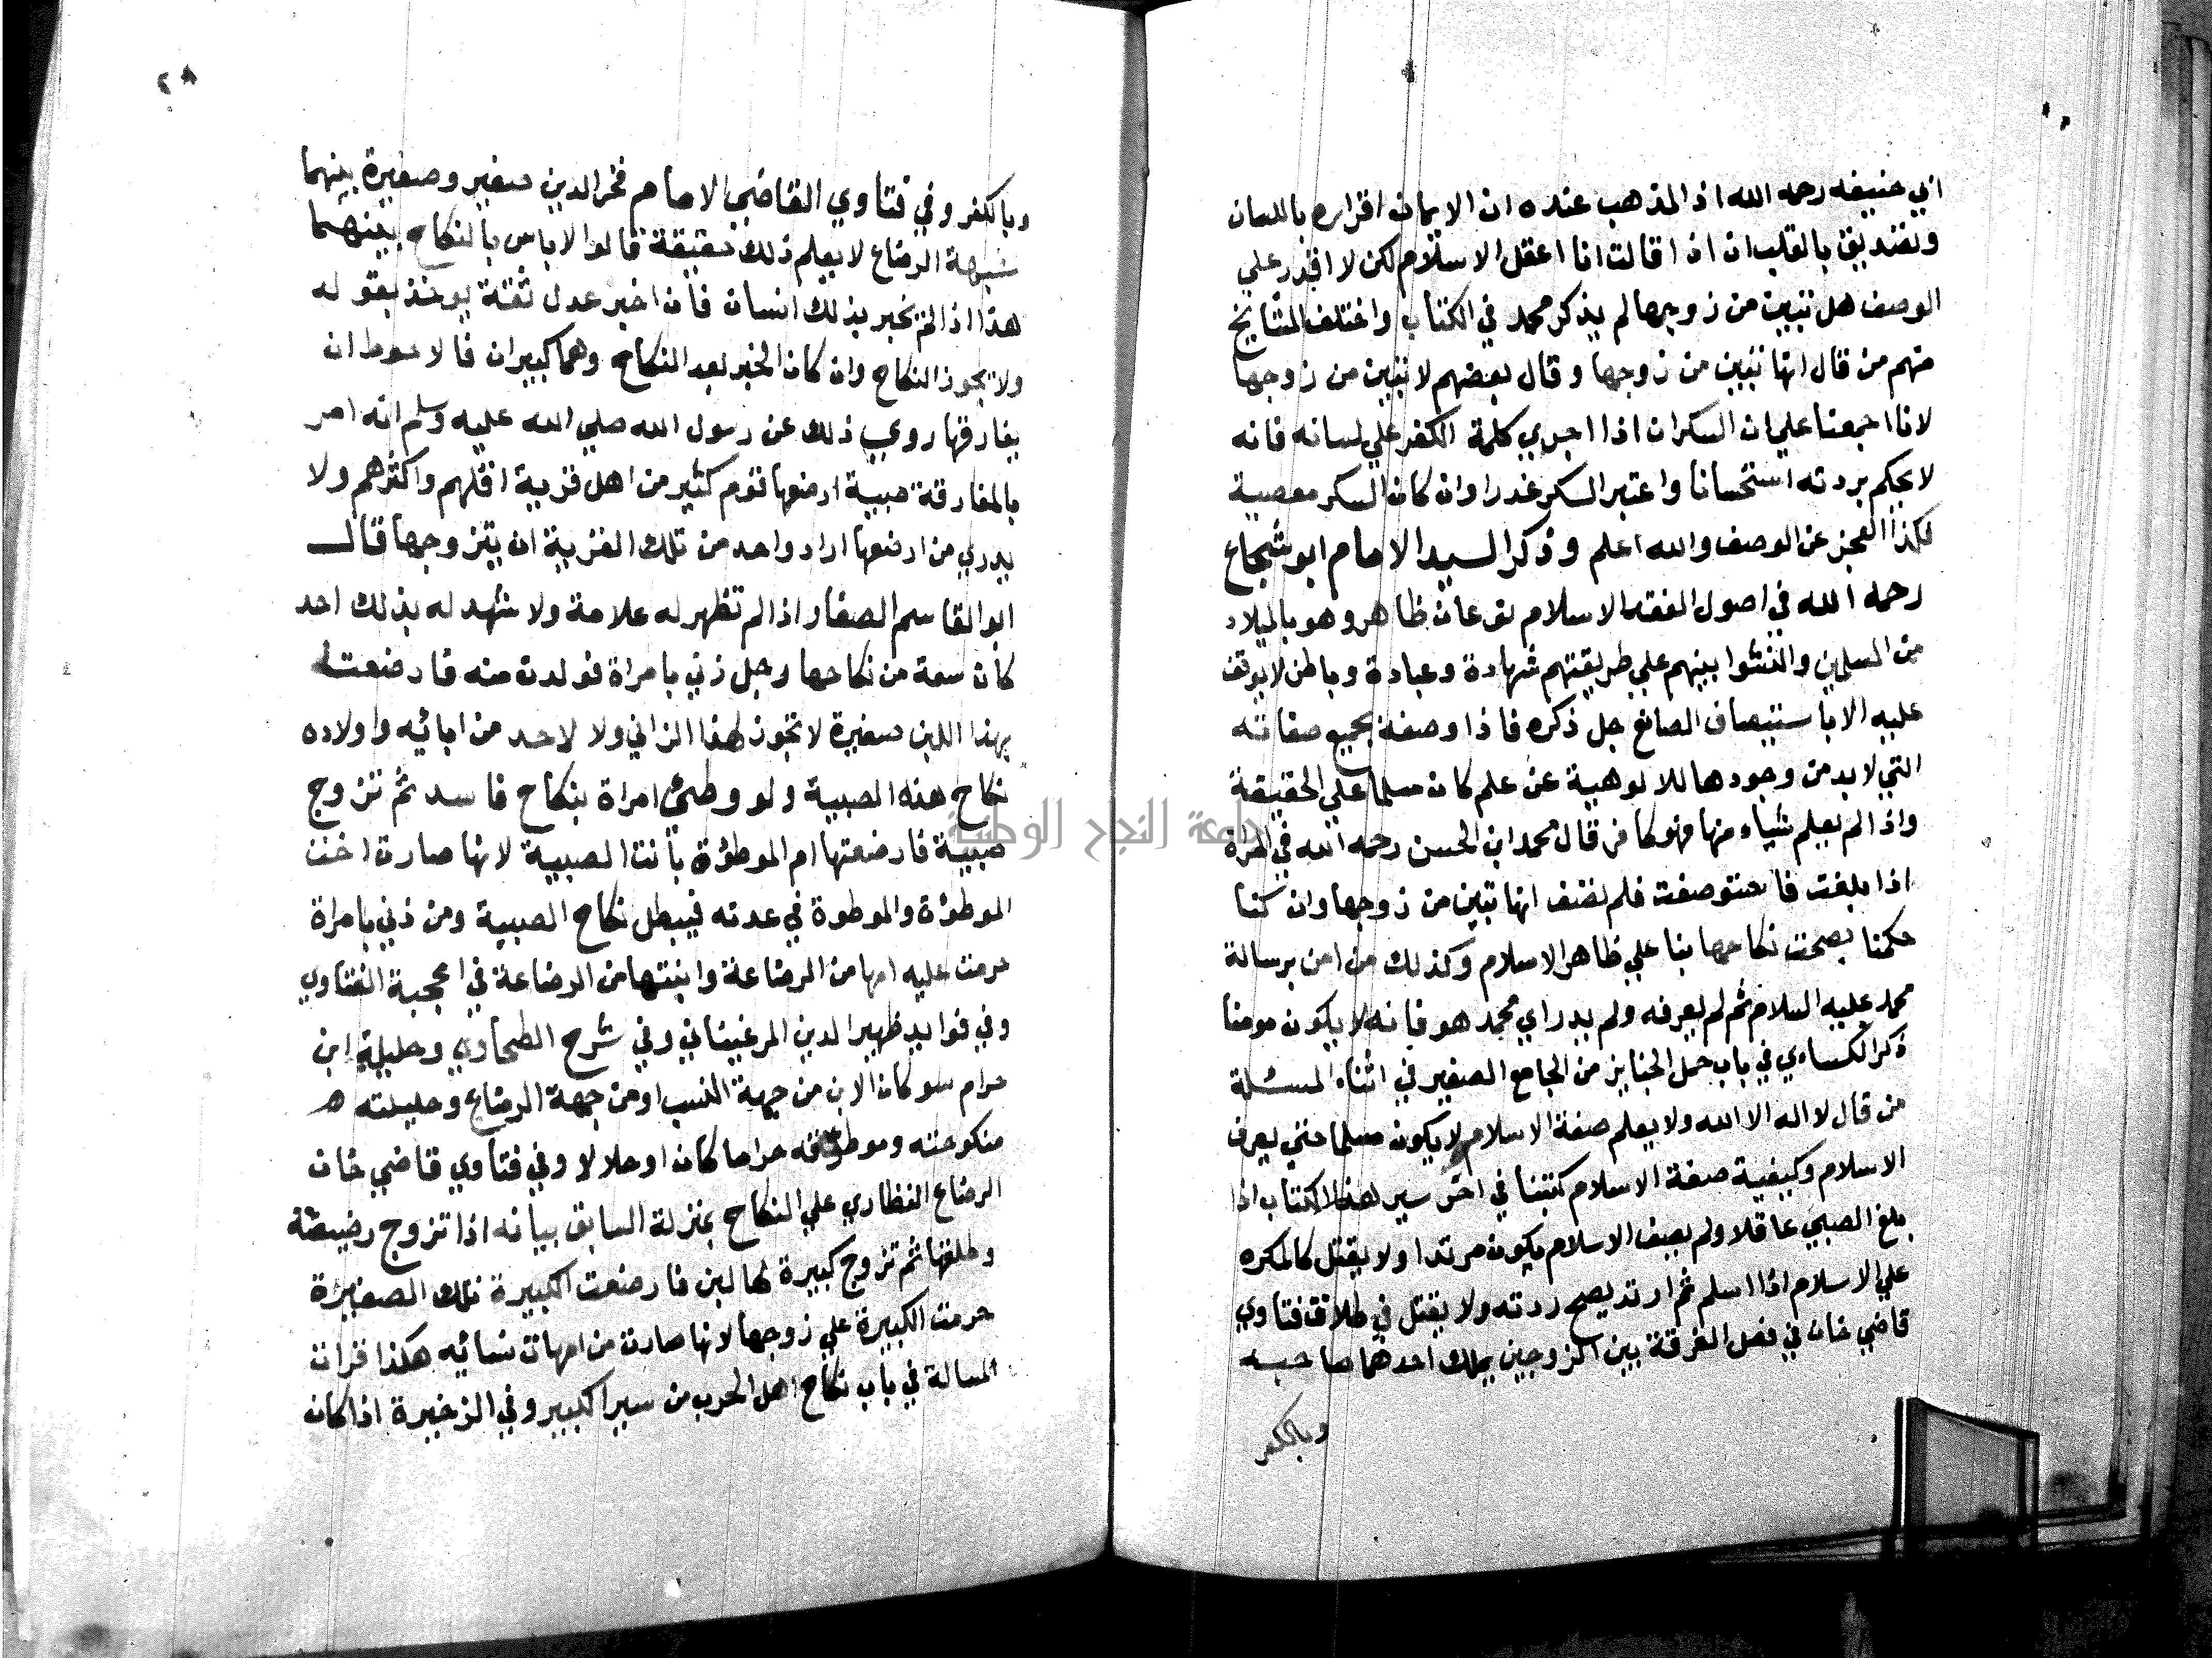 ابي حنيفه رحمه الله اذ المذهب عنده ان الايمان اقراره باللسان
وتصديق بالقلب ان اذا قالت انا اعقل الاسلام لكن لا اقدر علي
الوصف هل تبين من زوجها لم يذكر محمد في الكتاب واختلف المشايخ
منهم من قال انها تبين من زوجها وقال بعضهم لا تبين من زوجها
لانا اجمعنا علي ان السكران اذا اجري كلمة الكفر علي لسانه فانه
لا يحكم بردته استحسانا واعتبر السكر عذرا وان كان السكر معصية
فكذا العجز عن الوصف والله اعلم وذكر السيد الامام ابو شجاع
رحمه الله في اصول الفقه الاسلام نوعان ظاهر وهو بالميلاد
من المسلمين والنشوا بينهم علي طريقتهم شهادة وعبادة وباطن لا يوقف
عليه الا باستيصاف الصانع جل ذكره فاذا وصفه بجميع صفاته
التي لابد من وجودها للالوهية عن علم كان مسلما علي الحقيقة
واذا لم يعلم شياء منها فهو كافر قال محمد ابن الحسن رحمه الله في امراة
اذا بلغت فاستوصفت فلم تصف انها تبين من زوجها وان كنا
حكمنا بصحت نكاحها بنا علي ظاهر الاسلام وكذلك من امن برسالة
محمد عليه السلام ثم لم يعرفه ولم يدر اي محمد هو فانه لا يكون مومنا
ذكر الكساءي في باب حمل الجنايز من الجامع الصغير في اثناء المسئلة
من قال لا اله الا الله ولا يعلم صفة الاسلام لا يكون مسلما حتي يعرف
الاسلام وكيفية صفة الاسلام كتبنا في اخر سير هذا الكتاب اذا
بلغ الصبي عاقلا ولم يصف الاسلام يكون مرتدا ولا يقتل كالمكره
علي الاسلام اذا اسلم ثم ارتد يصح ردته ولا يقتل في طلاق فتاوي
قاضي خان في فصل الفرقة بين الزوجين بملك احدهما صاحبه
وبالكفر
٢٨
وبالكفر وفي فتاوي القاضي الامام فخر الدين صغير وصغيرة بينهما
شبهة الرضاع لا يعلم ذلك حقيقة قالوا لا باس بالنكاح بينهما
هذا اذا لم يخبر بذلك انسان فان اخبر عدل ثقة يوخذ بقوله
ولا يجوز النكاح وان كان الخبر بعد النكاح وهما كبيران فالاحوط ان
يفارقها روي ذلك عن رسول الله صلي الله عليه وسلم انه امر
بالمفارقة صبية ارضعها قوم كثير من اهل قرية اقلهم واكثرهم ولا
يدري من ارضعها اراد واحد من تلك القرية ان يتزوجها قال
ابو القاسم الصفار اذا لم تظهر له علامة ولا شهد له بذلك احد
كان سعة من نكاحها رجل زني بامراة فولدت منه فارضعت
بهذا اللبن صغيرة لا تجوز لهذا الزاني ولا لاحد من ابائيه واولاده
نكاح هذه الصبية ولو وطئ امراة بنكاح فاسد ثم تزوج
صبية فارضعتها ام الموطؤة بانت الصبية لانها صارت اخت
الموطؤة والموطوة في عدته فيبطل نكاح الصبية ومن زني بامراة
حرمت عليه امها من الرضاعة وابنتها من الرضاعة في اعجبة الفتاوي
وفي فوايد ظهير الدين المرغيناني وفي شرح الطحاوي وحليلة ابن
حرام سو كان الابن من جهة النسب او من جهة الرضاع وحليلته ه
منكوحته وموطؤته حراما كان او حلالا وفي فتاوي قاضي خان
الرضاع الطاري علي النكاح بمنزلة السابق بيانه اذا تزوج رضيعة
وطلقها ثم تزوج كبيرة لها لبن فارضعت الكبيرة تلك الصغيرة
حرمت الكبيرة علي زوجها لانها صارت من امهات نسائيه هكذا قرات
المسالة في باب نكاح اهل الحرب من سير الكبير وفي الذخيرة اذا كان
جامعة النجاح الوطنية